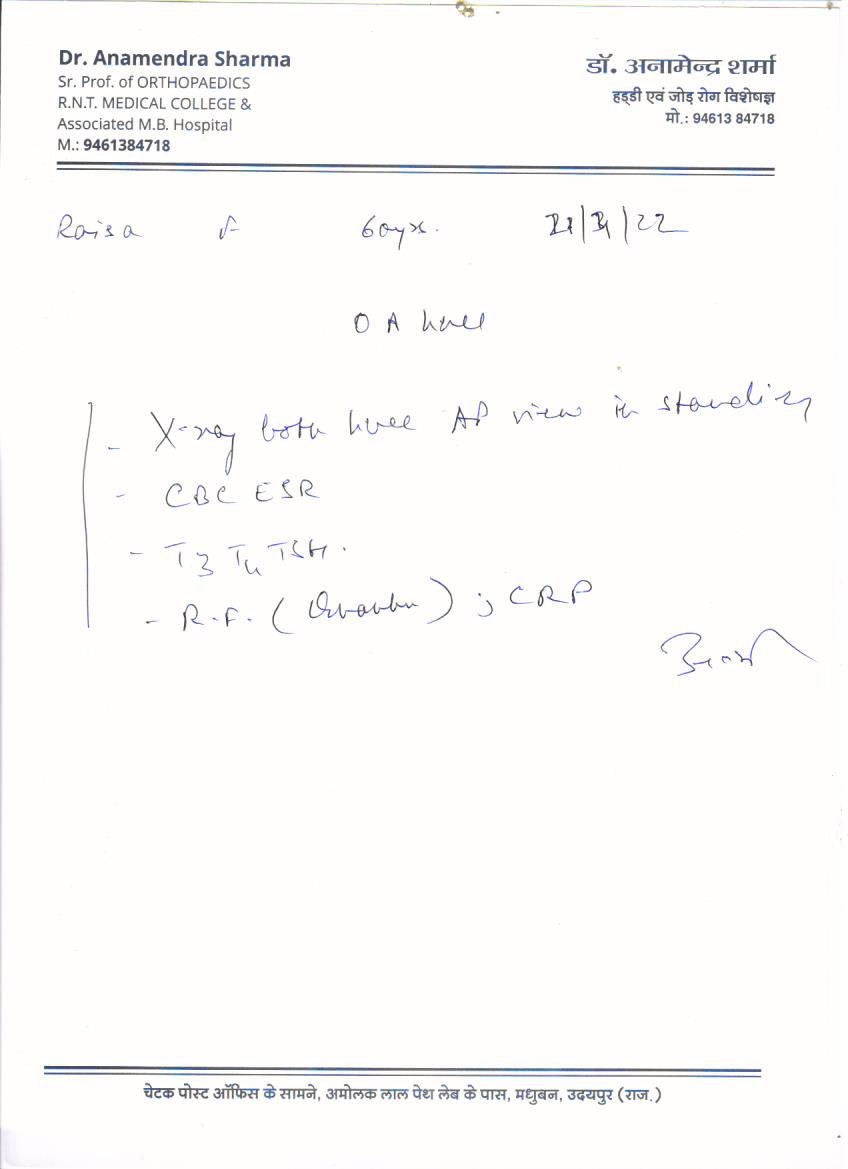 Dr. Anamendra Sharma
Sr. Prof. of ORTHOPAEDICS
R.N.T. MEDICAL COLLEGE &
Associated M.B. Hospital
M.: 9461384718
डॉ. अनामेन्द्र शर्मा
हड्डी एवं जोड़ रोग विशेषज्ञ
मो.: 94613 84718
Raisa F 60yr. /22
O A knee
- X-ray both knee AP view in standing
- CBC ESR
- T3 T4 TSH.
- R.F. ( ) ; CRP
चेटक पोस्ट ऑफिस के सामने, अमोलक लाल पेथ लेब के पास, मधुबन, उदयपुर (राज.)